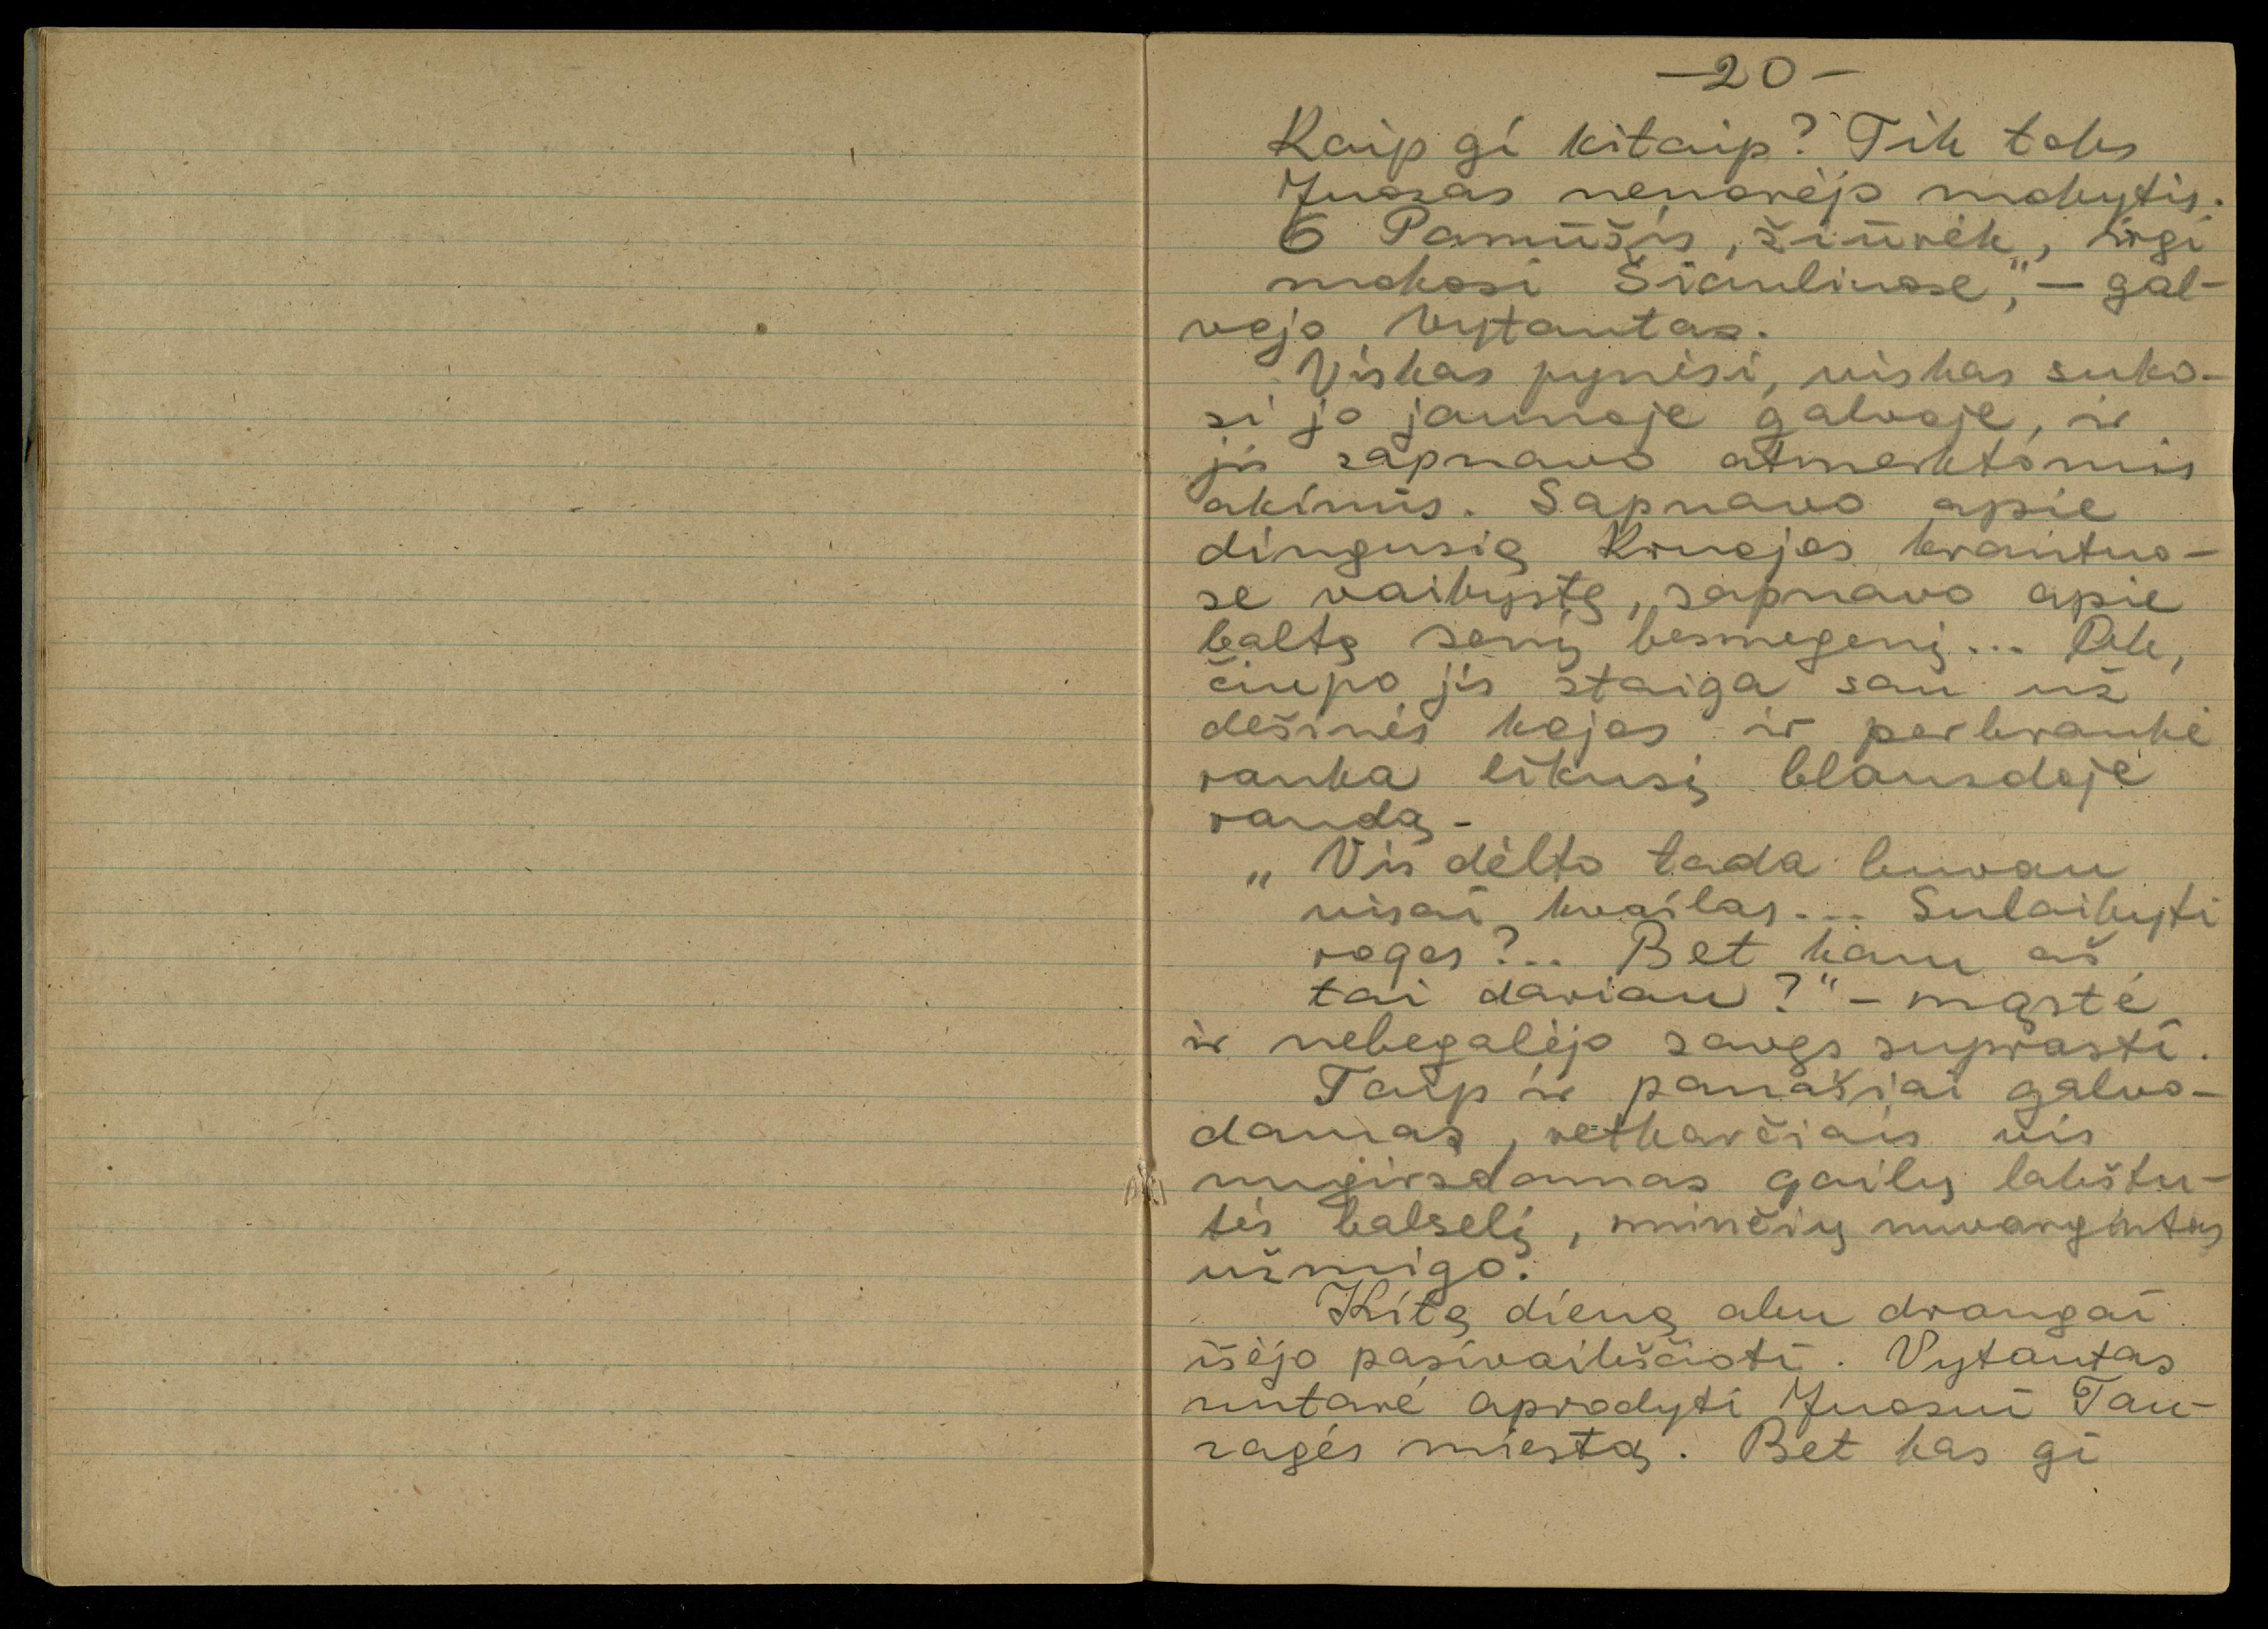 —20—
Kaip gi kitaip? Tik toks
Juozas nenorėjo mokytis.
O Pamūšis, žiūrėk, irgi
mokosi Šiauliuose", — gal-
vojo Vytautas.
Viskas pynėsi, viskas suko-
si jo jaunoje galvoje, ir
jis sapnavo atmerktomis
akimis. Sapnavo apie
dingusią Kruojos krantuo-
se vaikystę, sapnavo apie
baltą senį besmegenį... Pek,
čiupo jis staiga sau už
dešinės kojos ir perbraukė
ranka likusį blauzdoje
randą-
„Vis dėlto tada buvau
visai kvailas... Sulaikyti
roges?.. Bet kam aš
tai dariau?" – mąstė
ir nebegalėjo savęs suprasti.
Taip ir panašiai galvo-
damas, retkarčiais vis
nugirsdamas gailų lakštu-
tės balselį, minčių nuvargintas
užmigo.
Kitą dieną abu draugai
išėjo pasivaikščioti. Vytautas
nutarė aprodyti Juozui Tau-
ragės miestą. Bet kas gi